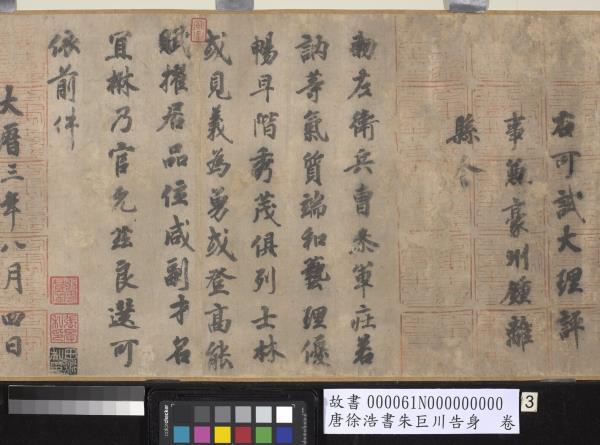 右可試大理評
事兼豪州鍾離
縣令
勑左衛兵曹叅軍莊若
訥等氣質端和藝理優
暢早階秀茂俱列士林
或見義為勇或登高能
賦擢居品位咸副才名
宜楙乃官允茲良選可
依前件
大曆三年八月四日
故書 000061N000000000
唐徐浩書朱巨川告身 卷
3